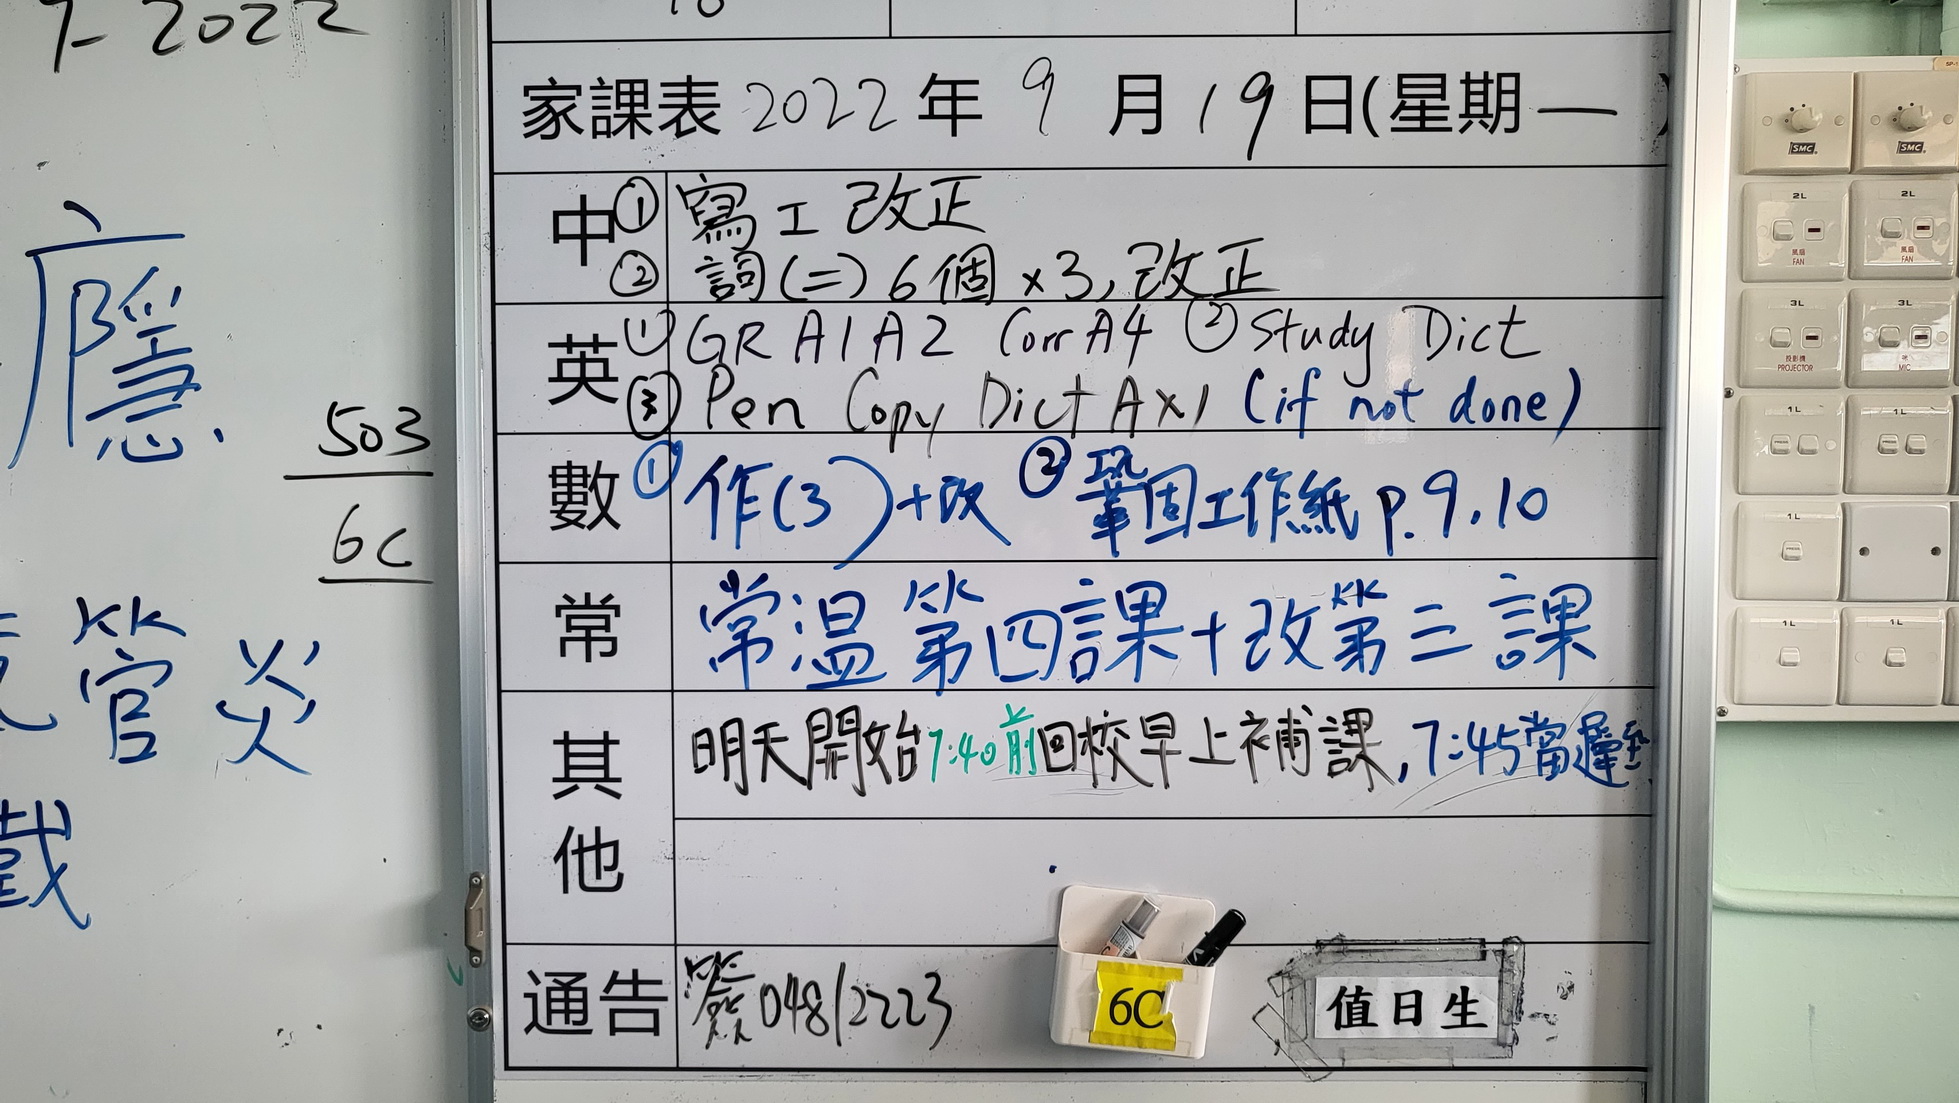 7-2022
癮
503
6C
管炎
戲
18
家課表 2022 年 9 月 19 日(星期一 )
中 ① 寫工改正
② 詞(二) 6個 x3, 改正
英 ① GR A1A2 Corr A4 ② Study Dict
③ Pen Copy Dict A x1 (if not done)
數 ① 作(3)+改 ② 鞏固工作紙 p.9.10
常 常温第四課+改第三課
其他 明天開始7:40前回校早上補課,7:45當遲到
通告 簽048/2223
6C
值日生
SMC
SMC
2L
風扇
FAN
2L
風扇
FAN
3L
投影機
PROJECTOR
3L
咪
MIC
1L
1L
1L
1L
1L